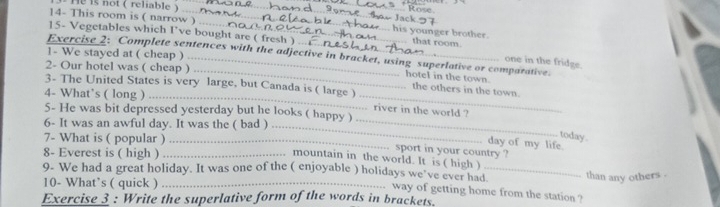 Rose.
13- He is not ( reliable ) more reliable than his younger brother.
14- This room is ( narrow ) narrower than that room.
15- Vegetables which I've bought are ( fresh ) fresher than one in the fridge.
Exercise 2: Complete sentences with the adjective in bracket, using superlative or comparative.
1- We stayed at ( cheap ) .......... hotel in the town.
2- Our hotel was ( cheap ) .......... the others in the town.
3- The United States is very large, but Canada is ( large ) ..........
4- What's ( long ) .......... river in the world ?
5- He was bit depressed yesterday but he looks ( happy ) .......... today.
6- It was an awful day. It was the ( bad ) .......... day of my life.
7- What is ( popular ) .......... sport in your country ?
8- Everest is ( high ) .......... mountain in the world. It is ( high ) .......... than any others -
9- We had a great holiday. It was one of the ( enjoyable ) holidays we've ever had.
10- What's ( quick ) .......... way of getting home from the station ?
Exercise 3 : Write the superlative form of the words in brackets.